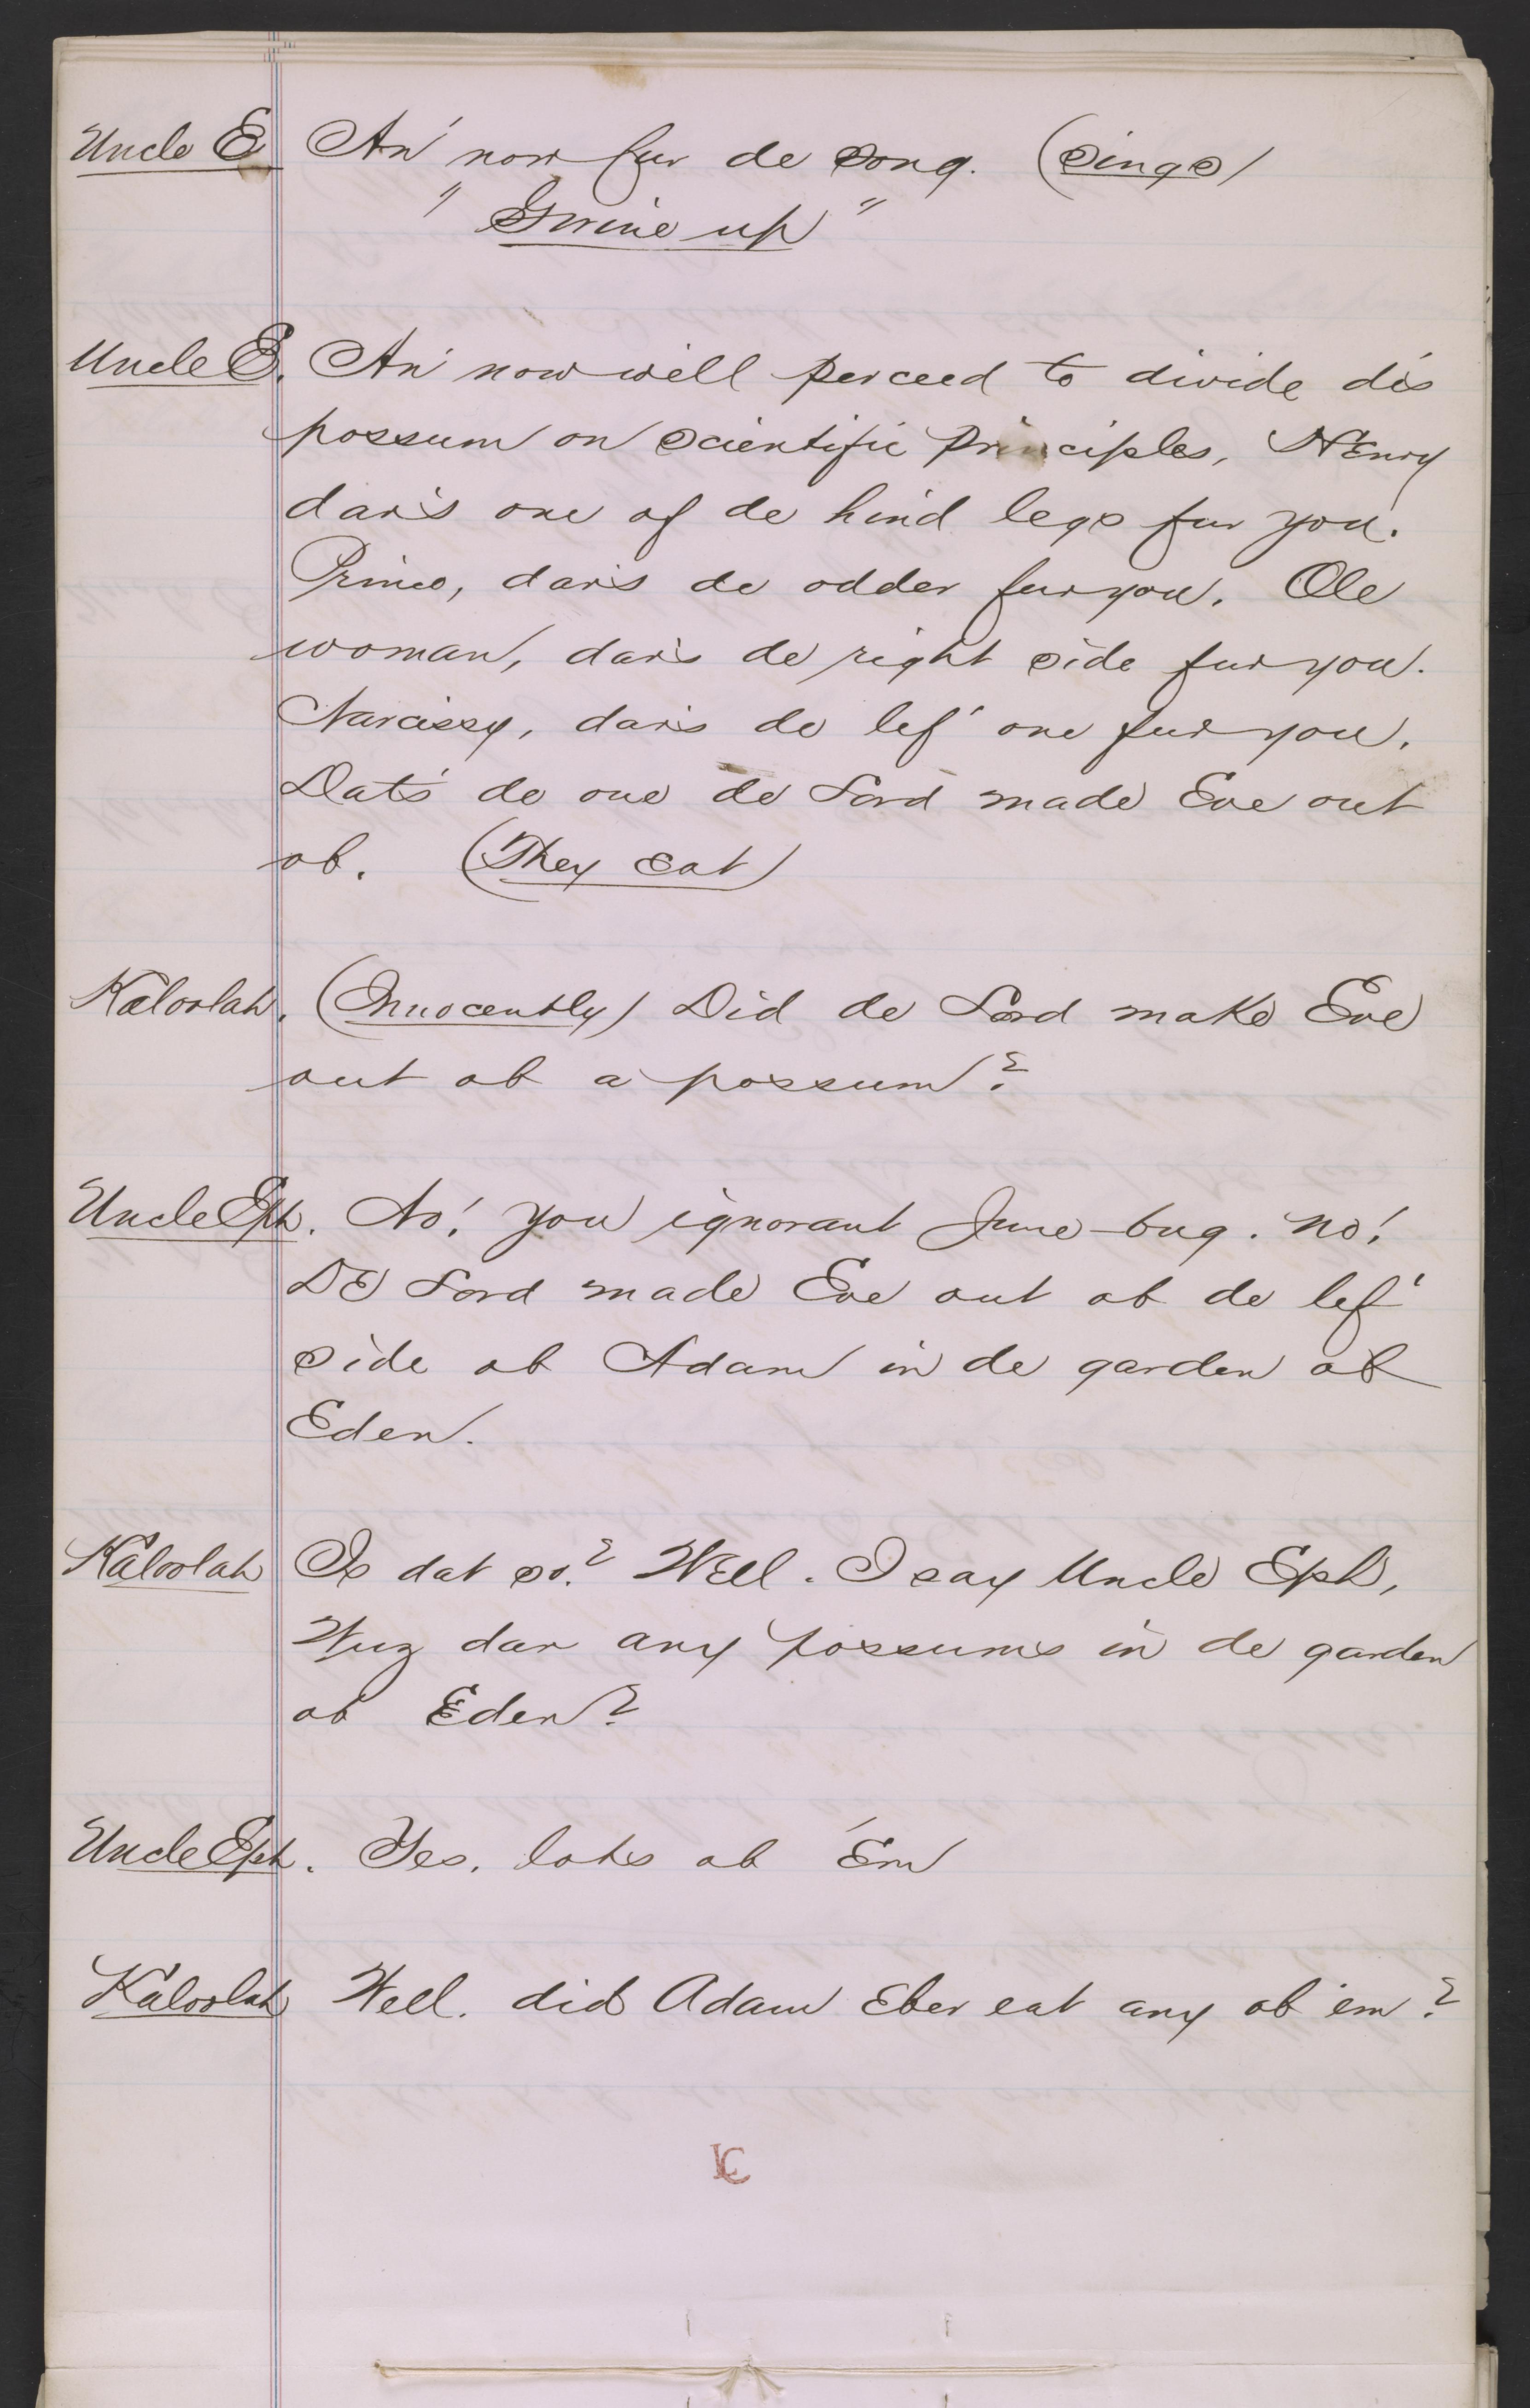 Uncle E. An' now fur de song. (Sings)
"Gwine up"
Uncle E. An' now will perceed to divide dis
possum on scientific principles, Henry
dar's one of de hind legs fur you.
Prince, dar's de odder fur you. Ole
woman, dar's de right side fur you.
Narcissy, dar's de lef' one fur you.
Dat's de one de Lord made Eve out
ob. (They eat)
Kaloolah. (Innocently) Did de Lord make Eve
out ob a possum?
Uncle Eph. No! you ignorant June-bug. no!
De Lord made Eve out ob de lef'
side ob Adam in de garden ob
Eden.
Kaloolah Is dat so? Well. I say Uncle Eph,
Wuz dar any possums in de garden
ob Eden?
Uncle Eph. Yes. lots ob 'Em
Kaloolah Well. did Adam Eber eat any ob 'em?
LC